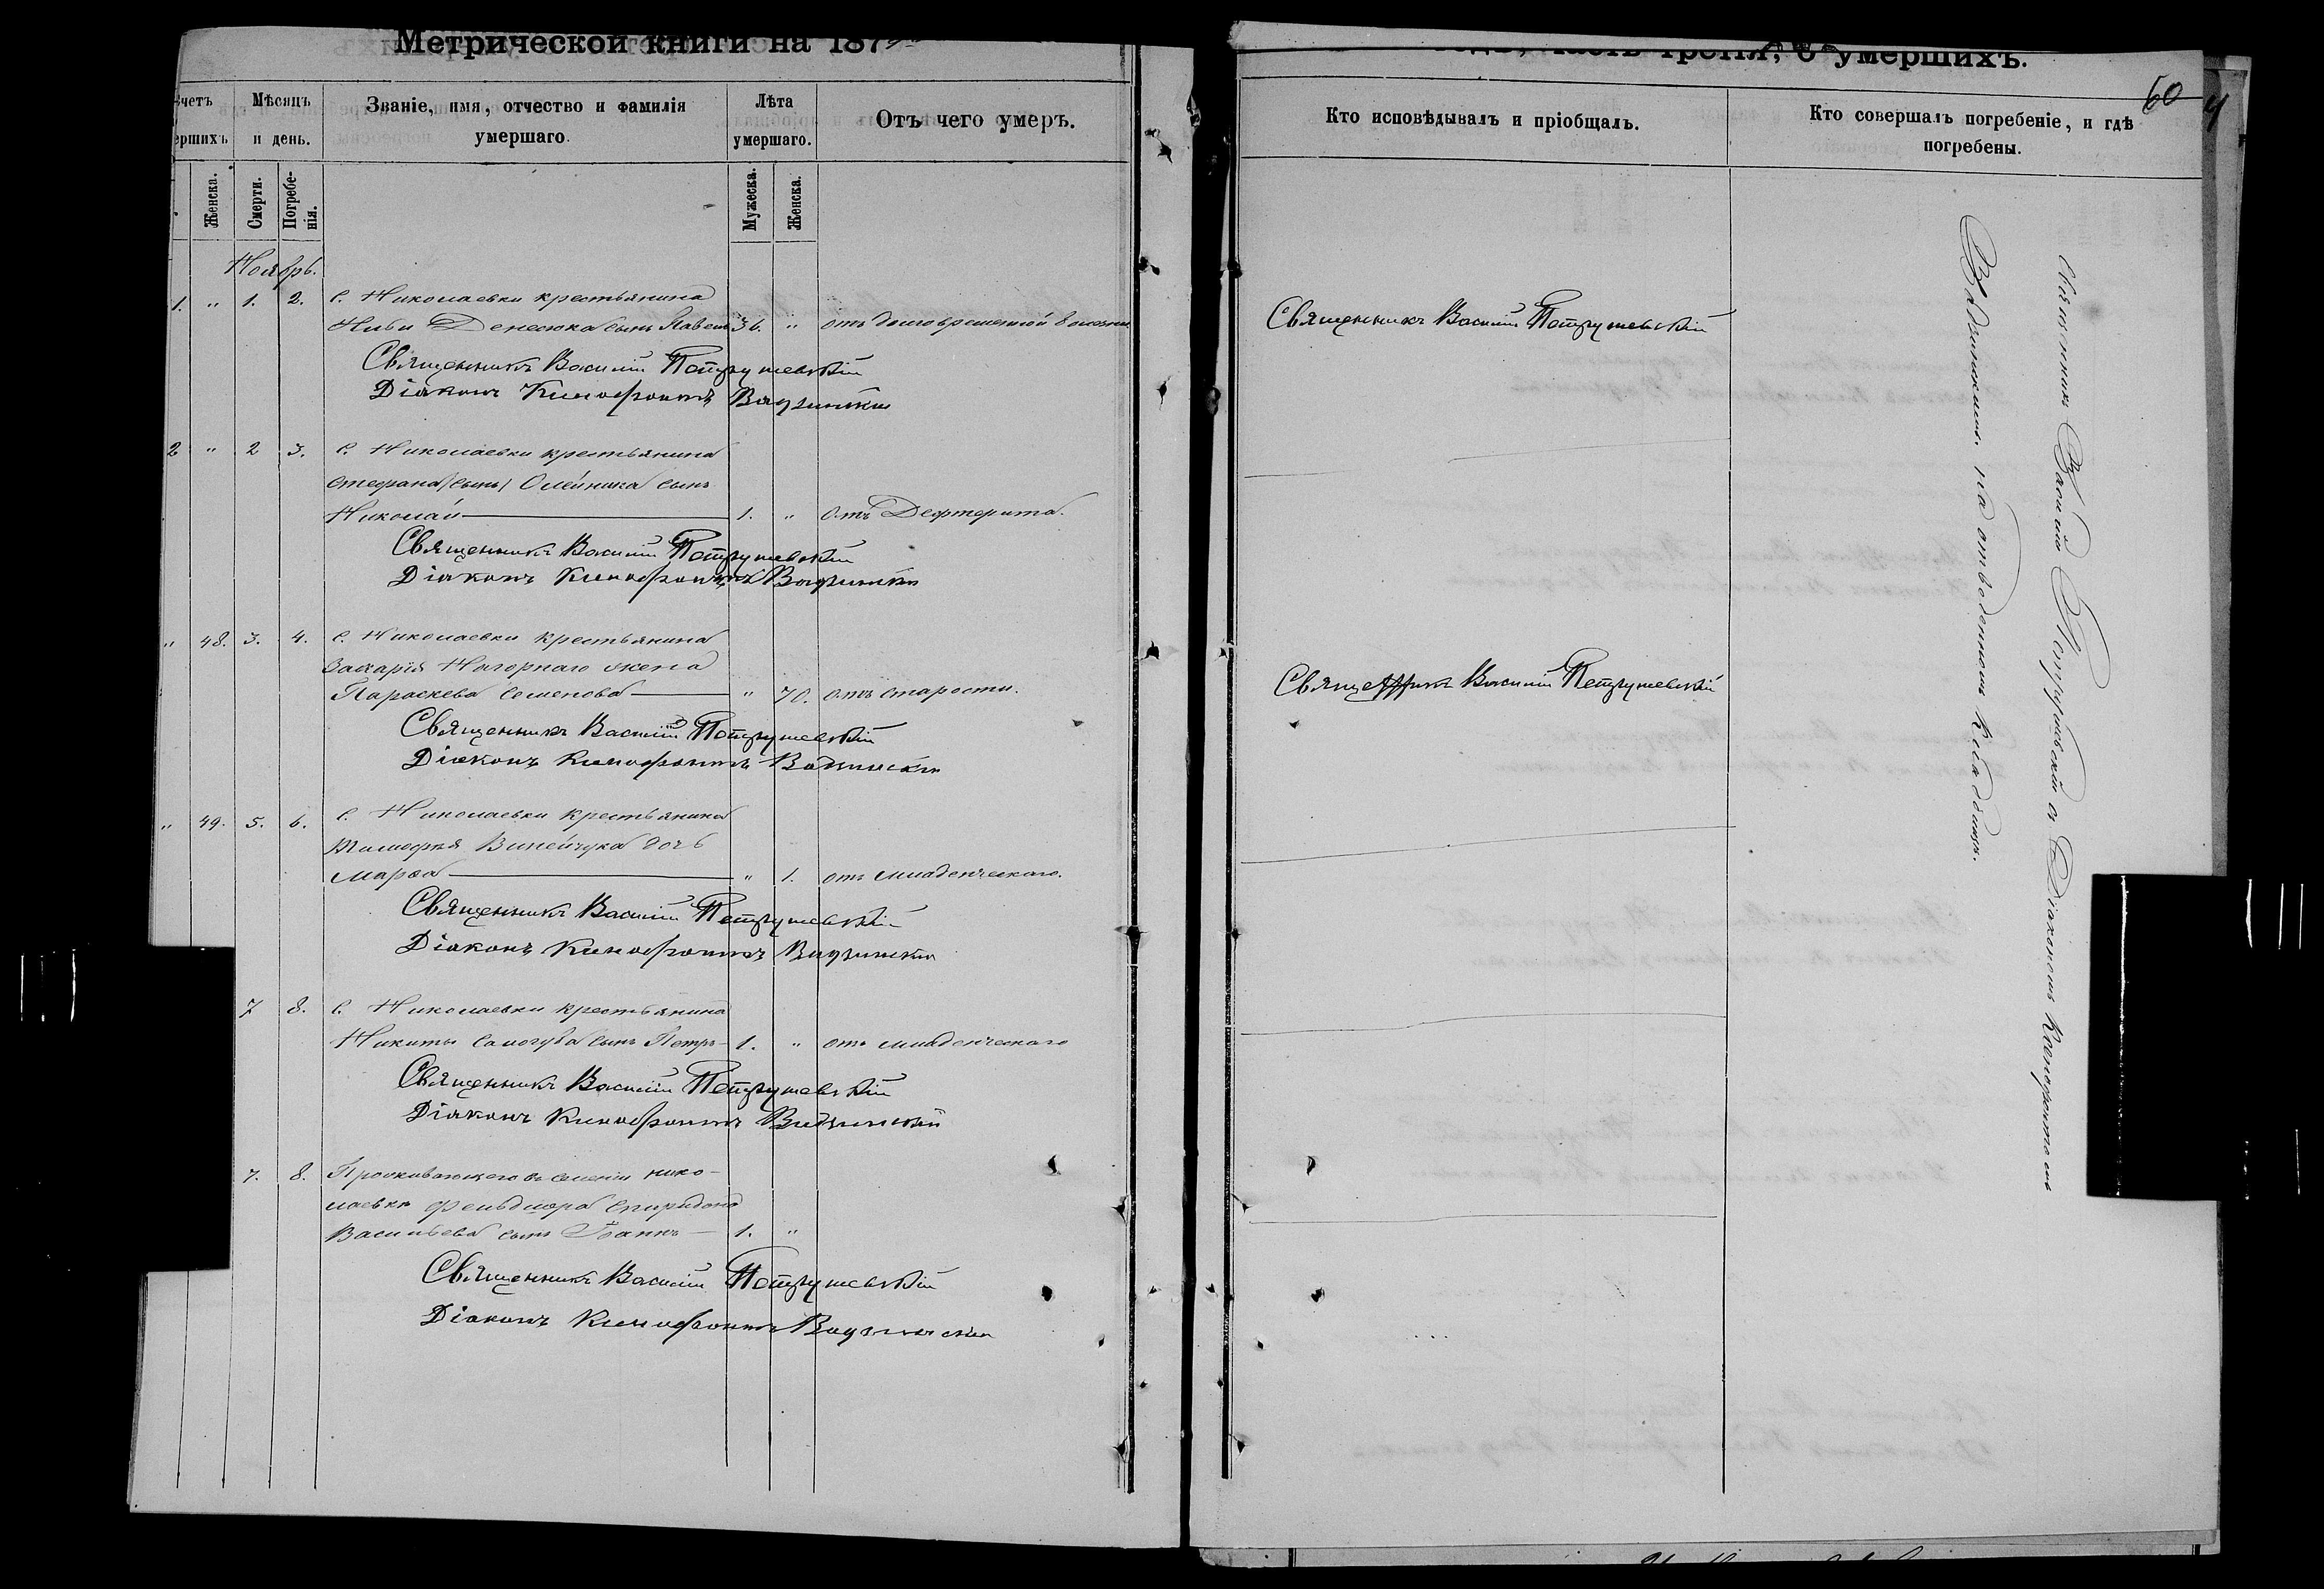 Метрической книги на 187
умершихъ.
60
Счетъ
умершихъ
Мѣсяцъ
и день.
Званіе, имя, отчество и фамилія
умершаго.
Лѣта
умершаго.
Отъ чего умеръ.
Кто исповѣдывалъ и пріобщалъ.
Кто совершалъ погребеніе, и гдѣ
погребены.
Женска.
Смерти.
Погребе-
нія.
Мужеска.
Женска.
Ноябрь.
1. " 1. 2. С. Николаевки крестьянина
Денесюка сынъ Павелъ 36. " отъ долговременной болезни
Священникъ Василій Петрушевскій
Діаконъ Ксенофонтъ
Священникъ Василій Петрушевскій
2 " 2 3. С. Николаевки крестьянина
Стефана (сынъ) Олейника сынъ
Николай 1. " Отъ Дефтерита.
Священникъ Василій Петрушевскій
Діаконъ Ксенофонтъ
" 48. 3. 4. С. Николаевки крестьянина
Захарія Нагорнаго жена
Параскева Семенова " 70. отъ старости.
Священникъ Василій Петрушевскій
Діаконъ Ксенофонтъ
Священникъ Василій Петрушевскій
" 49. 5. 6. С. Николаевки крестьянина
Тимофея Винейчука дочь
Марѳа " 1. отъ младенческаго.
Священникъ Василій Петрушевскій
Діаконъ Ксенофонтъ
7 8. С. Николаевки крестьянина
Никиты сынъ Петръ 1. " отъ младенческаго
Священникъ Василій Петрушевскій
Діаконъ Ксенофонтъ
7. 8. Проживающего въ селеніи Нико-
лаевки фельдшера Спиридона
Васильева сынъ Іоаннъ 1. "
Священникъ Василій Петрушевскій
Діаконъ Ксенофонтъ
Священникъ Василій Петрушевскій съ Діакономъ Ксенофонтомъ
на отведенномъ кладбищѣ.